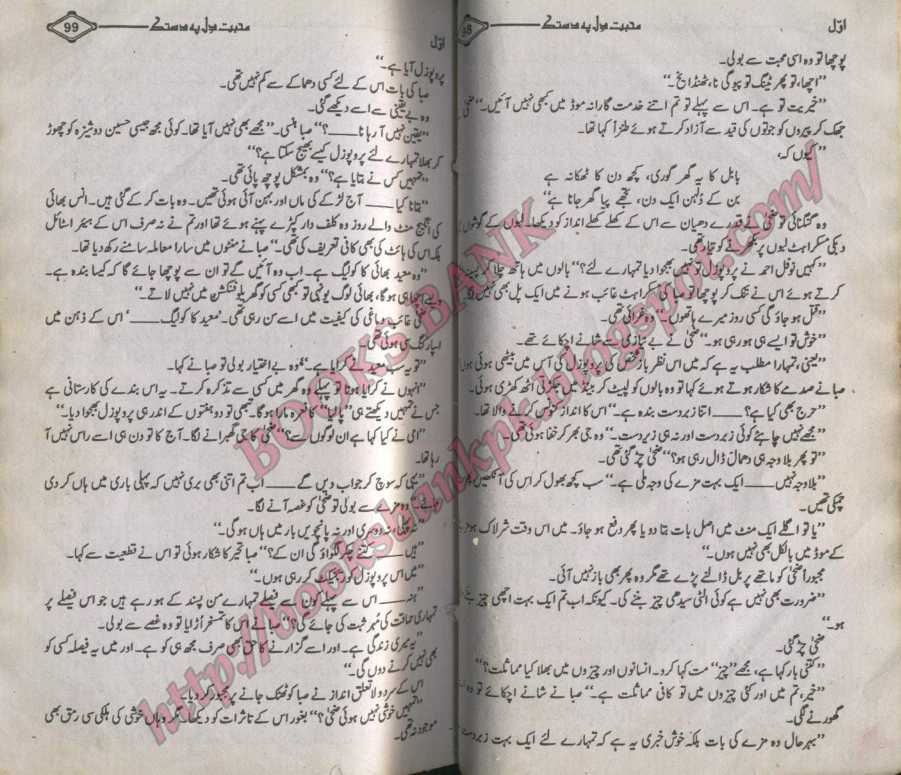 اوّل محبت دل پہ دستک 98
پوچھا تو وہ اسی محبت سے بولی۔
’’اچھا، تو پھر ٹینگ تو پیو گی نا، ٹھنڈا یخ۔‘‘
’’خیریت تو ہے۔ اس سے پہلے تو تم اتنے خدمت گارانہ موڈ میں کبھی نہیں آئیں۔‘‘ ضحیٰ نے
جھک کر پیروں کو جوتوں کی قید سے آزاد کرتے ہوئے طنزاً کہا تھا۔
’’کیوں کہ،
بابل کا یہ گھر گوری، کچھ دن کا ٹھکانہ ہے
بن کے دُلہن ایک دن، تجھے پیا گھر جانا ہے‘‘
وہ گنگنائی تو ضحیٰ نے قدرے دھیان سے اس کے کھلے کھلے انداز کو دیکھا۔ لبوں کے گوشوں
دبکی مسکراہٹ لبوں پر بکھرنے کو تیار تھی۔
’’کہیں نوفل احمد نے پرپوزل تو نہیں بھجوا دیا تمہارے لئے؟‘‘ بالوں میں ہاتھ چلا کر
کرتے ہوئے اس نے تنک کر پوچھا تو صبا کی مسکراہٹ غائب ہونے میں ایک پل بھی نہیں لگا
’’قتل ہو جاؤ گی کسی روز میرے ہاتھوں۔‘‘ وہ غرائی تھی۔
’’خوش تو ایسے ہی ہو رہی ہو۔‘‘ ضحیٰ نے بے نیازی سے شانے اچکائے تھے۔
’’یعنی، تمہارا مطلب یہ ہے کہ میں اس نظر باز شخص کی پرپوزل کی آس میں بیٹھی ہوئی ہوں
صبا نے صدمے کا شکار ہوتے ہوئے کہا تو وہ بالوں کو لپیٹ کر بینڈ میں جکڑتی اٹھ کھڑی ہوئی۔
’’حرج بھی کیا ہے؟ ____ اتنا زبردست بندہ ہے۔‘‘ اس کا انداز کنونس کرنے والا تھا۔
’’مجھے نہیں چاہئے کوئی زبردست اور نہ ہی زبردست۔‘‘ وہ جی بھر کر خفا ہوئی تھی۔
’’تو پھر بلاوجہ ہی دھمال ڈال رہی ہو؟‘‘ ضحیٰ چڑ گئی تھی۔
’’بلاوجہ نہیں ____ ایک بہت مزے کی وجہ ملی ہے۔‘‘ سب کچھ بھول کر اس کی آنکھیں پھر
چمکی تھیں۔
’’یا تو اگلے ایک منٹ میں اصل بات بتا دو یا پھر دفع ہو جاؤ۔ میں اس وقت شرلاک ہومز
کے موڈ میں بالکل بھی نہیں ہوں۔‘‘
مجبوراً ضحیٰ کو ماتھے پر بل ڈالنے پڑے تھے مگر وہ پھر بھی باز نہیں آئی۔
’’ضرورت بھی نہیں ہے کوئی الٹی سیدھی چیز بننے کی۔ کیونکہ اب تم ایک بہت اچھی چیز بننے
ہو۔‘‘
ضحیٰ چڑ گئی۔
’’کتنی بار کہا ہے، مجھے ’’چیز‘‘ مت کہا کرو۔ انسانوں اور چیزوں میں بھلا کیا مماثلت؟‘‘
’’خیر، تم میں اور کئی چیزوں میں تو کافی مماثلت ہے۔‘‘ صبا نے شانے اچکائے تو وہ
گھورنے لگی۔
’’بہرحال وہ مزے کی بات بلکہ خوش خبری یہ ہے کہ تمہارے لئے ایک بہت زبردست
اوّل محبت دل پہ دستک 99
پرپوزل آیا ہے۔‘‘
صبا کی بات اس کے لئے کسی دھماکے سے کم نہیں تھی۔
وہ بے یقینی سے اسے دیکھے گئی۔
’’یقین نہیں آ رہا نا ____؟‘‘ صبا ہنسی۔ ’’مجھے بھی نہیں آیا تھا۔ کوئی مجھ جیسی حسین دوشیزہ کو چھوڑ
کر بھلا تمہارے لئے پرپوزل کیسے بھیج سکتا ہے؟‘‘
’’تمہیں کس نے بتایا ہے؟‘‘ وہ بمشکل پوچھ پائی تھی۔
’’بتانا کیا ____ آج لڑکے کی ماں اور بہن آئی ہوئی تھیں۔ وہ بات کر کے گئی ہیں۔ انس بھائی
کی انگیج منٹ والے روز وہ کلف دار کپڑے پہنے ہوئے تھا اور تم نے نہ صرف اس کے ہیئر اسٹائل
بلکہ اس کی ہائٹ کی بھی کافی تعریف کی تھی۔‘‘ صبا نے منٹوں میں سارا معاملہ سامنے رکھ دیا تھا۔
’’وہ معید بھائی کا کولیگ ہے۔ اب وہ آئیں گے تو ان سے پوچھا جائے گا کہ کیسا بندہ ہے۔
ویسے اچھا ہی ہو گا، بھائی لوگ یونہی تو کبھی کسی کو گھریلو فنکشن میں نہیں لاتے۔‘‘
ضحیٰ غائب دماغی کی کیفیت میں اسے سن رہی تھی۔ ’معید کا کولیگ ____‘ اس کے ذہن میں
اسپارکنگ سی ہوئی تھی۔
’’تو یہ سب معید نے کرایا ہے۔‘‘ وہ بے اختیار بولی تو صبا نے کہا۔
’’انہوں نے کرایا ہوتا تو پہلے وہ گھر میں کسی سے تذکرہ کرتے۔ یہ اس بندے کی کارستانی ہے
جس نے تمہیں دیکھتے ہی ’’پا لیا‘‘ کا نعرہ مارا ہو گا۔ تبھی تو دو ہفتوں کے اندر ہی پرپوزل بھجوا دیا۔‘‘
’’امی نے کیا کہا ہے ان لوگوں سے؟‘‘ ضحیٰ کا جی گھبرانے لگا۔ آج کا تو دن ہی اسے راس نہیں آ
رہا تھا۔
’’یہی کہ سوچ کر جواب دیں گے ____ اب تم اتنی بھی بری نہیں کہ پہلی باری میں ہاں کر دی
جائے۔‘‘ وہ مزے سے بولی تو ضحیٰ کو غصہ آنے لگا۔
’’نہ پہلی، نہ دوسری اور نہ پانچویں بار میں ہاں ہو گی۔‘‘
’’ہیں ____ کتنے چکر لگواؤ گی ان کے؟‘‘ صبا تحیر کا شکار ہوئی تو اس نے قطعیت سے کہا۔
’’میں اس پرپوزل کو ریجیکٹ کر رہی ہوں۔‘‘
’’ہنہ ____ اس سے پہلے کون سے فیصلے تمہارے من پسند کے ہو رہے ہیں جو اس فیصلے پر
تمہاری حماقت کی مُہر ثبت کی جائے گی؟‘‘ صبا نے اس کا تمسخر اُڑایا تو وہ غصے سے بولی۔
’’یہ میری زندگی ہے۔ اور اسے گزارنے کا حق بھی صرف مجھ ہی کو ہے۔ اور میں یہ فیصلہ کسی کو
بھی نہیں کرنے دوں گی۔‘‘
اس کے سرد و لاتعلق انداز نے صبا کو ٹھٹک جانے پر مجبور کر دیا۔
’’تمہیں خوشی نہیں ہوئی ضحیٰ؟‘‘ بغور اس کے تاثرات کو دیکھا۔ مگر وہاں خوشی کی ہلکی سی رمق بھی
موجود نہ تھی۔
BOOKS BANK
http://booksbankpk.blogspot.com/